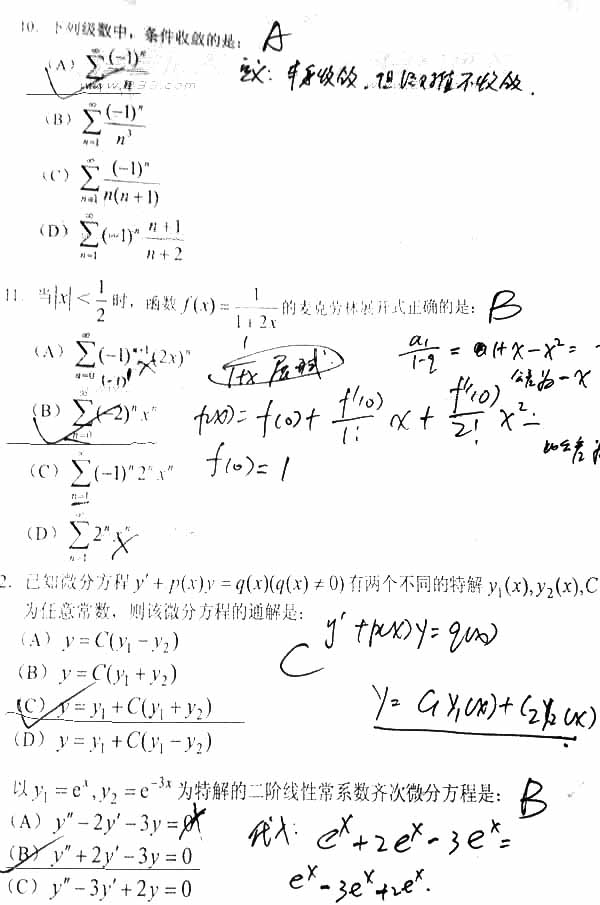 10. 下列级数中，条件收敛的是： A
(A) $\sum_{n=1}^{\infty}\frac{(-1)^n}{n}$
定义：本身收敛，但绝对值不收敛．
(B) $\sum_{n=1}^{\infty}\frac{(-1)^n}{n^3}$
(C) $\sum_{n=1}^{\infty}\frac{(-1)^n}{n(n+1)}$
(D) $\sum_{n=1}^{\infty}(-1)^n\frac{n+1}{n+2}$
11. 当$|x|<\frac{1}{2}$时，函数$f(x)=\frac{1}{1+2x}$的麦克劳林展开式正确的是： B
(A) $\sum_{n=0}^{\infty}(-1)^{n+1}(2x)^n$
$\frac{1}{1+x}$ 展式
$\frac{a_1}{1-q}$ = 1+x-x² =
公差为-x
(B) $\sum_{n=0}^{\infty}(-2)^n x^n$
f(x)=f(0)+$\frac{f'(0)}{1!}$x+$\frac{f''(0)}{2!}$x²=
(C) $\sum_{n=1}^{\infty}(-1)^n 2^n x^n$
f(0)=1
(D) $\sum_{n=1}^{\infty}2^n x^n$
2. 已知微分方程$y'+p(x)y=q(x)(q(x)\neq 0)$有两个不同的特解$y_1(x),y_2(x)$,C
为任意常数，则该微分方程的通解是：
C
y'+p(x)y=q(x)
(A) $y=C(y_1-y_2)$
(B) $y=C(y_1+y_2)$
(C) $y=y_1+C(y_1+y_2)$
y=C₁y₁(x)+C₂y₂(x)
(D) $y=y_1+C(y_1-y_2)$
以$y_1=e^x,y_2=e^{-3x}$为特解的二阶线性常系数齐次微分方程是： B
(A) $y''-2y'-3y=0$
代入: $e^x+2e^x-3e^x=$
(B) $y''+2y'-3y=0$
$e^x-3e^x+2e^x$.
(C) $y''-3y'+2y=0$